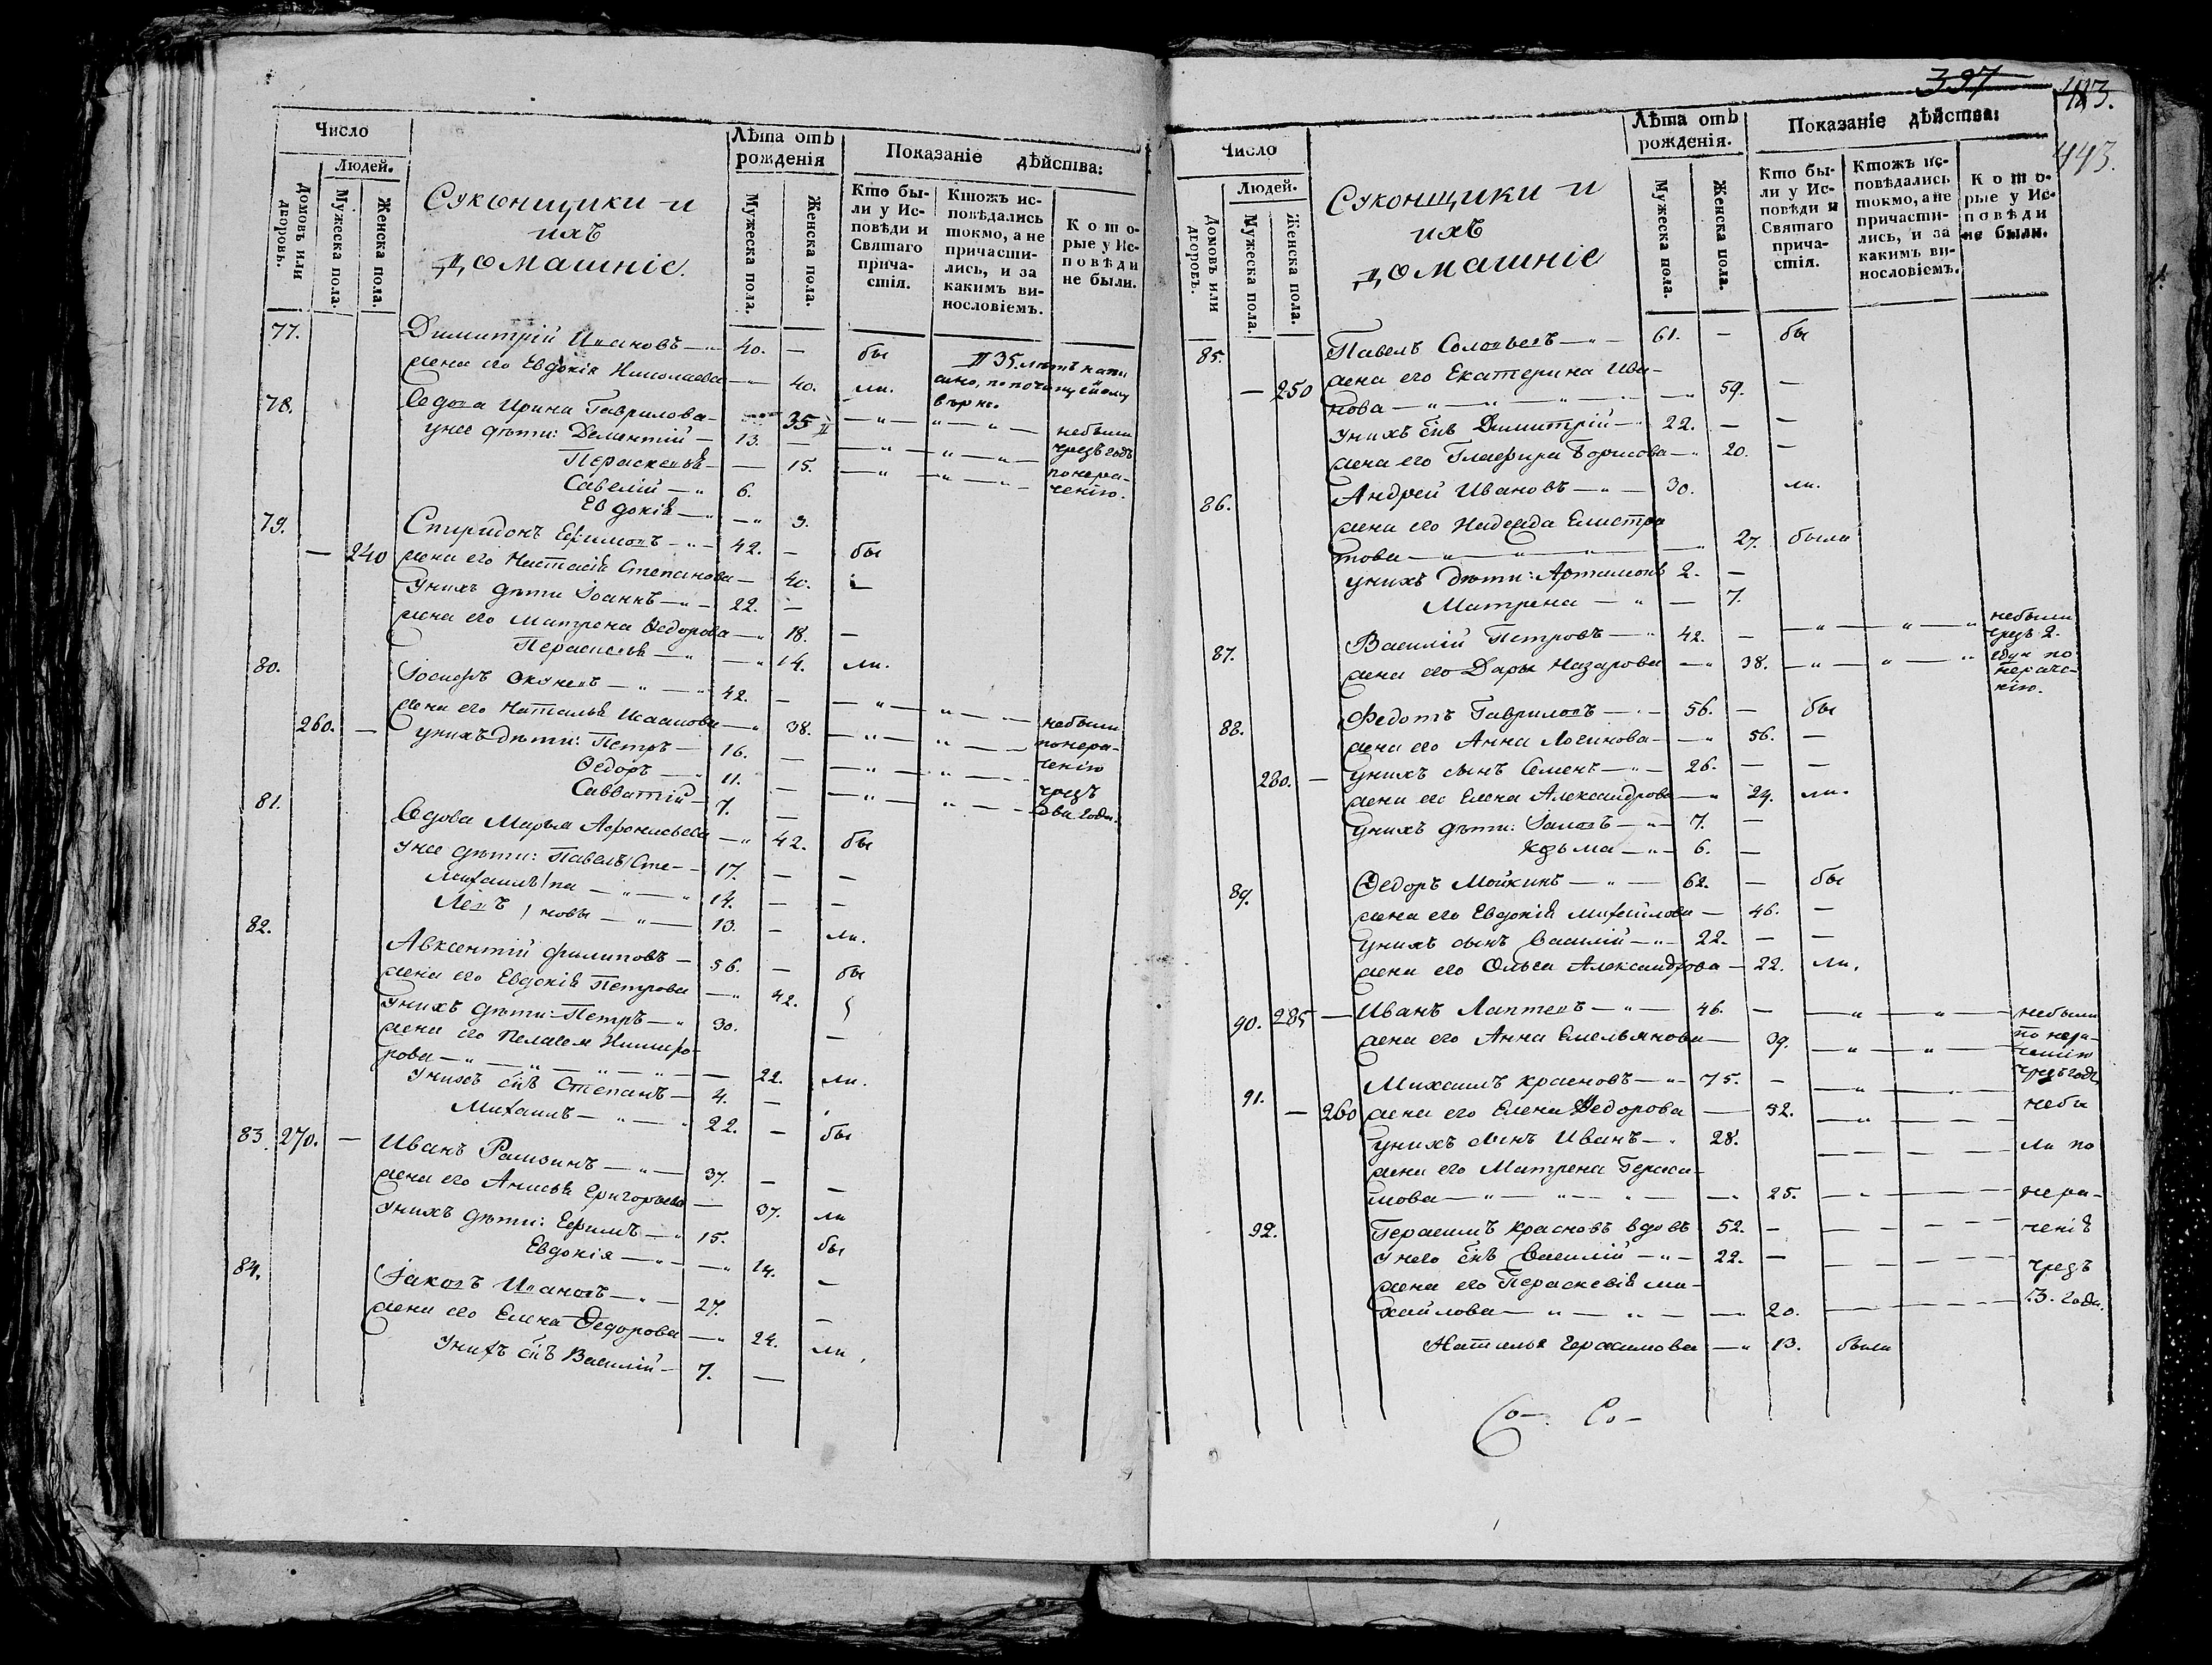 Число
Людей.
Домовъ или дворовъ.
Мужеска пола.
Женска пола.
Суконщики и
ихъ
домашніе.
Лѣта отъ рожденія
Мужеска пола.
Женска пола.
Показаніе дѣйства:
Кто бы-
ли у Ис-
повѣди и
Святаго
прича-
стія.
Ктожъ ис-
повѣдались
токмо, а не
причасти-
лись, и за
какимъ ви-
нословіемъ.
Кото-
рые у Ис-
повѣди
не были.
77. Димитрій Ивановъ — 40. — бы
жена его Евдокія Николаева — 40. ли.
35. лѣтъ напи
сано, по почищеному
вѣрно.
78. Вдова Ирина Гаврилова — 35 небыли
у нее дѣти: Дементій — 13. — чрезъ годъ
Параскева — 15. понера-
Савелій — 6. ченію.
Евдокія — 3.
79. Спиридонъ Ефимовъ — 42. — бы
— 240 жена его Настасія Степанова — 40. —
У нихъ дѣти Іоаннъ — 22. —
жена его Матрена Федорова — 18. —
Параскева — 14. ли.
80. Іосифъ Окуневъ — 42. — небыли
жена его Наталья Исаакова — 38. понера-
260. — у нихъ дѣти: Петръ — 16. — ченію
Федоръ — 11. — чрезъ
Савватій — 7. — два года.
81. Вдова Марья Афонасьева — 42. бы
У нее дѣти: Павелъ Сте- — 17. — —
Михаилъ па — 14. — —
Левъ новы — 13. — ли.
82. Авксентій Филиповъ — 56. — бы
жена его Евдокія Петрова — 42.
У нихъ дѣти: Петръ — 30. —
жена его Пелагея Никифо-
рова — 22. ли.
У нихъ снъ Степанъ — 4. —
Михаилъ — 22. — бы
83. 270. — Иванъ Рамзинъ — 37. — —
жена его Анисья Григорьева — 37. ли
У нихъ дѣти: Ефимъ — 15. бы
Евдокія — 14. —
84. Іаковъ Ивановъ — 27. —
жена его Елена Федорова — 24. ли,
У нихъ снъ Василій — 7. —
397
413.
443.
Число
Людей.
Домовъ или дворовъ.
Мужеска пола.
Женска пола.
Суконщики и
ихъ
домашніе
Лѣта отъ рожденія.
Мужеска пола.
Женска пола.
Показаніе дѣйства:
Кто бы-
ли у Ис-
повѣди и
Святаго
прича-
стія.
Ктожъ ис-
повѣдались
токмо, а не
причасти-
лись, и за
какимъ ви-
нословіемъ.
Кото-
рые у Ис-
повѣди
не были.
85. Павелъ Соловьевъ — 61. — бы
— 250 жена его Екатерина Ива-
нова — 59. —
У нихъ снъ Димитрій — 22. — —
жена его Глафира Борисова — 20. —
86. Андрей Ивановъ — 30. ли.
жена его Надежда Елистра
това — 27. были
у нихъ дѣти: Артамонъ 2. —
Матрена — 7.
87. Василій Петровъ — 42. — небыли
чрезъ 2.
жена его Дарья Назарова — 38. года по
нераче-
нію.
88. Федотъ Гавриловъ — 56. — бы
жена его Анна Логинова — 56. —
280. — у нихъ сынъ Семенъ — 26. — —
жена его Елена Александрова — 24. ли.
у нихъ дѣти: — 7. —
Козьма — 6. —
89. Федоръ Мойкинъ — 62. — бы
жена его Евдокія Михайлова — 46. —
у нихъ сынъ Василій — 22. — —
жена его Ольга Александрова — 22. ли.
90. 285 — Иванъ Лаптевъ — 46. — небыли
жена его Анна Емельянова — 39. по нера-
ченію
чрезъ годъ
91. Михаилъ Красновъ — 75. —
— 260 жена его Елена Федорова — 52. небы
у нихъ сынъ Иванъ — 28. ли по
жена его Матрена Гераси-
мова — 25. нера-
92. Герасимъ Красновъ вдовъ 52. — ченію
У него снъ Василій — 22. — чрезъ
жена его Параскевія Ми-
хайлова — 20. 3. года.
Наталья Герасимова — 13. были